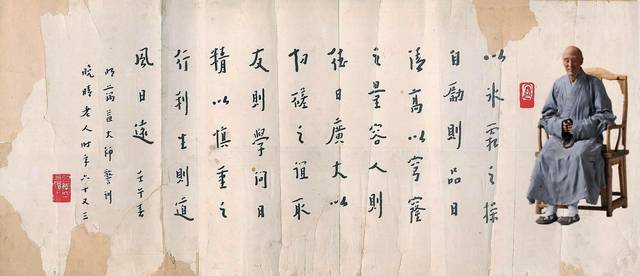 以冰霜之操
自勵則品日
清高以穹窿
之量容人則
德日廣大以
切磋之誼取
友則學問日
精以慎重之
行利生則道
風日遠 壬午
明蕅益大師警訓
晚晴老人时年六十又三